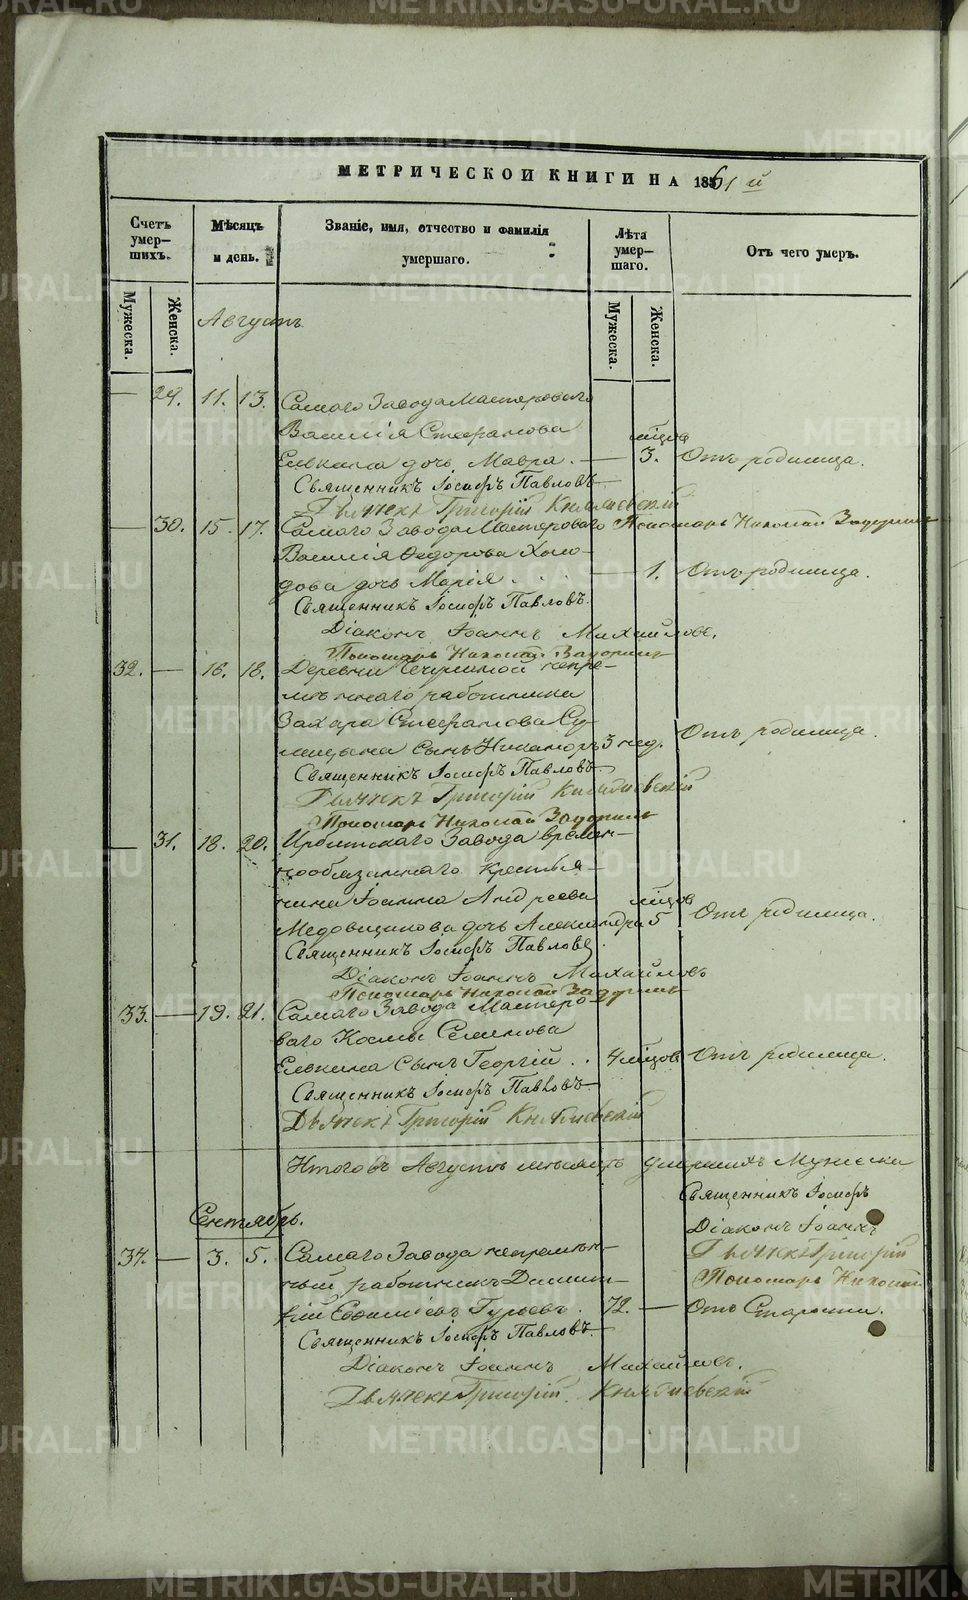 METRIKI.GASO-URAL.RU
МЕТРИЧЕСКОЙ КНИГИ НА 1861 й
Счетъ умер-шихъ.
Мѣсяцъ и день.
Званіе, имя, отчество и фамилія умершаго.
Лѣта умер-шаго.
Отъ чего умеръ.
Мужеска.
Женска.
Мужеска.
Женска.
Августъ
— 29. 11. 13. Самаго Завода Мастероваго
Василія Стефанова мѣсцов
Елькина дочь Мавра. — 3. Отъ родимца.
Священникъ Іосифъ Павловъ
Дьячекъ Григорій
— 30. 15. 17. Самаго Завода Мастероваго Пономарь Николай
Василія Ѳедорова Холо-
дова дочь Марія . . . — 1. Отъ родимца.
Священникъ Іосифъ Павловъ.
Діаконъ Іоаннъ Михайловъ.
Пономарь Николай
32. — 16. 18. Деревни непре-
мѣннаго работника
Захара Стефанова
сынъ Никаноръ 3 нед. Отъ родимца.
Священникъ Іосифъ Павловъ
Дьячекъ Григорій
Пономарь Николай
— 31. 18. 20. Ирбитскаго Завода времен-
нообязаннаго крестья-
нина Іоанна Андреева мѣсцов
Медовщикова дочь Александра 5 Отъ родимца.
Священникъ Іосифъ Павловъ
Діаконъ Іоаннъ Михайловъ
Пономарь Николай
33. — 19. 21. Самаго Завода Мастеро-
ваго Космы Семенова
Елькина сынъ Георгій . . 4 мѣсцов Отъ родимца.
Священникъ Іосифъ Павловъ
Дьячекъ Григорій
Итого въ Августѣ мѣсяцѣ умершихъ Мужеска
Священникъ Іосифъ
Діаконъ Іоаннъ
Сентябрь.
Дьячекъ Григорій
Пономарь Николай
34. — 3. 5. Самаго Завода непремѣн-
ный работникъ Димит-
рій Евфиміевъ Гурьевъ. 72. — Отъ Старости.
Священникъ Іосифъ Павловъ.
Діаконъ Іоаннъ Михайловъ.
Дьячекъ Григорій